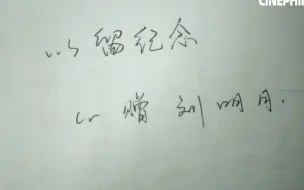 CINEPHIL
以留纪念
以赠刘明月.